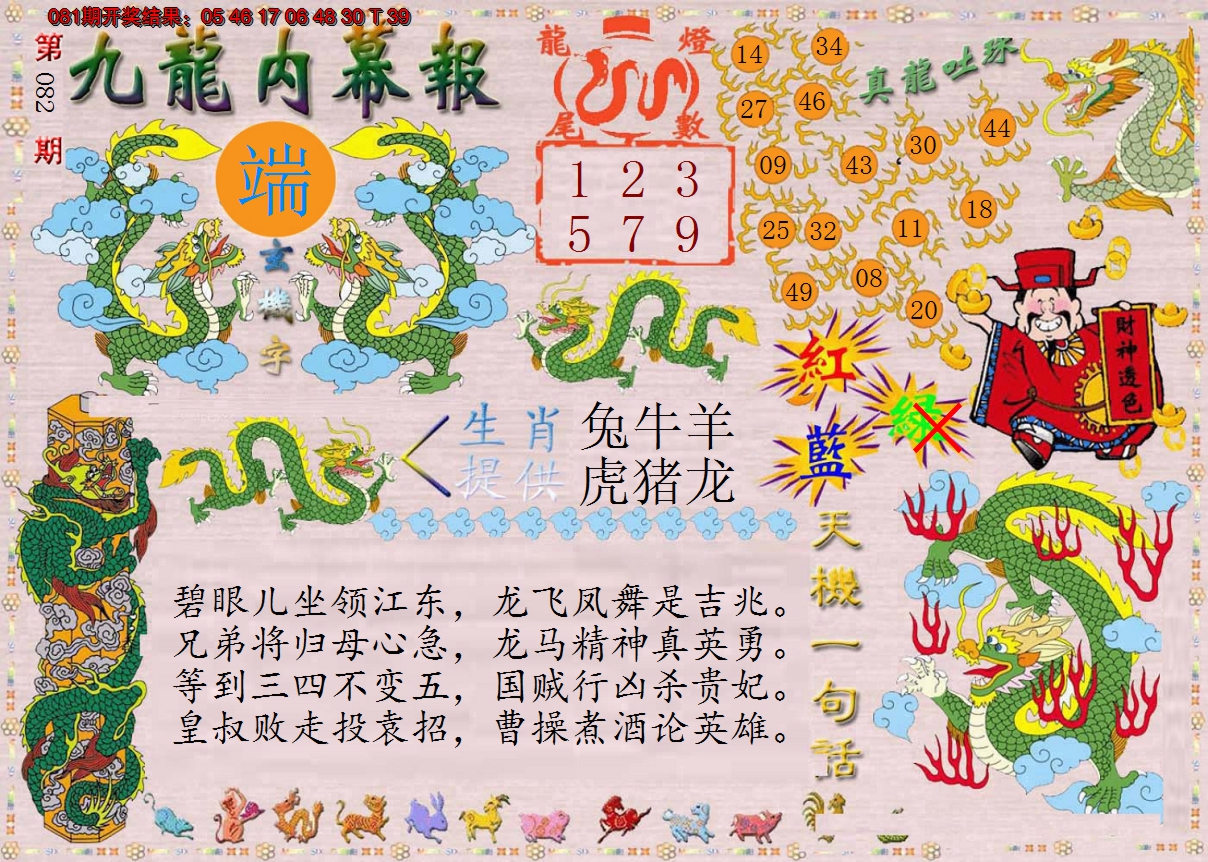 081期开奖结果：05 46 17 06 48 30 T 39
第 082 期
九龍内幕報
端
玄機字
龍燈
尾數
1 2 3
5 7 9
真龍吐珠
14 34
27 46
09 43 30 44
25 32 11 18
49 08 20
財神透色
紅
綠
藍
生肖 兔牛羊
提供 虎猪龙
天機一句话
碧眼儿坐领江东，龙飞凤舞是吉兆。
兄弟将归母心急，龙马精神真英勇。
等到三四不变五，国贼行凶杀贵妃。
皇叔败走投袁招，曹操煮酒论英雄。